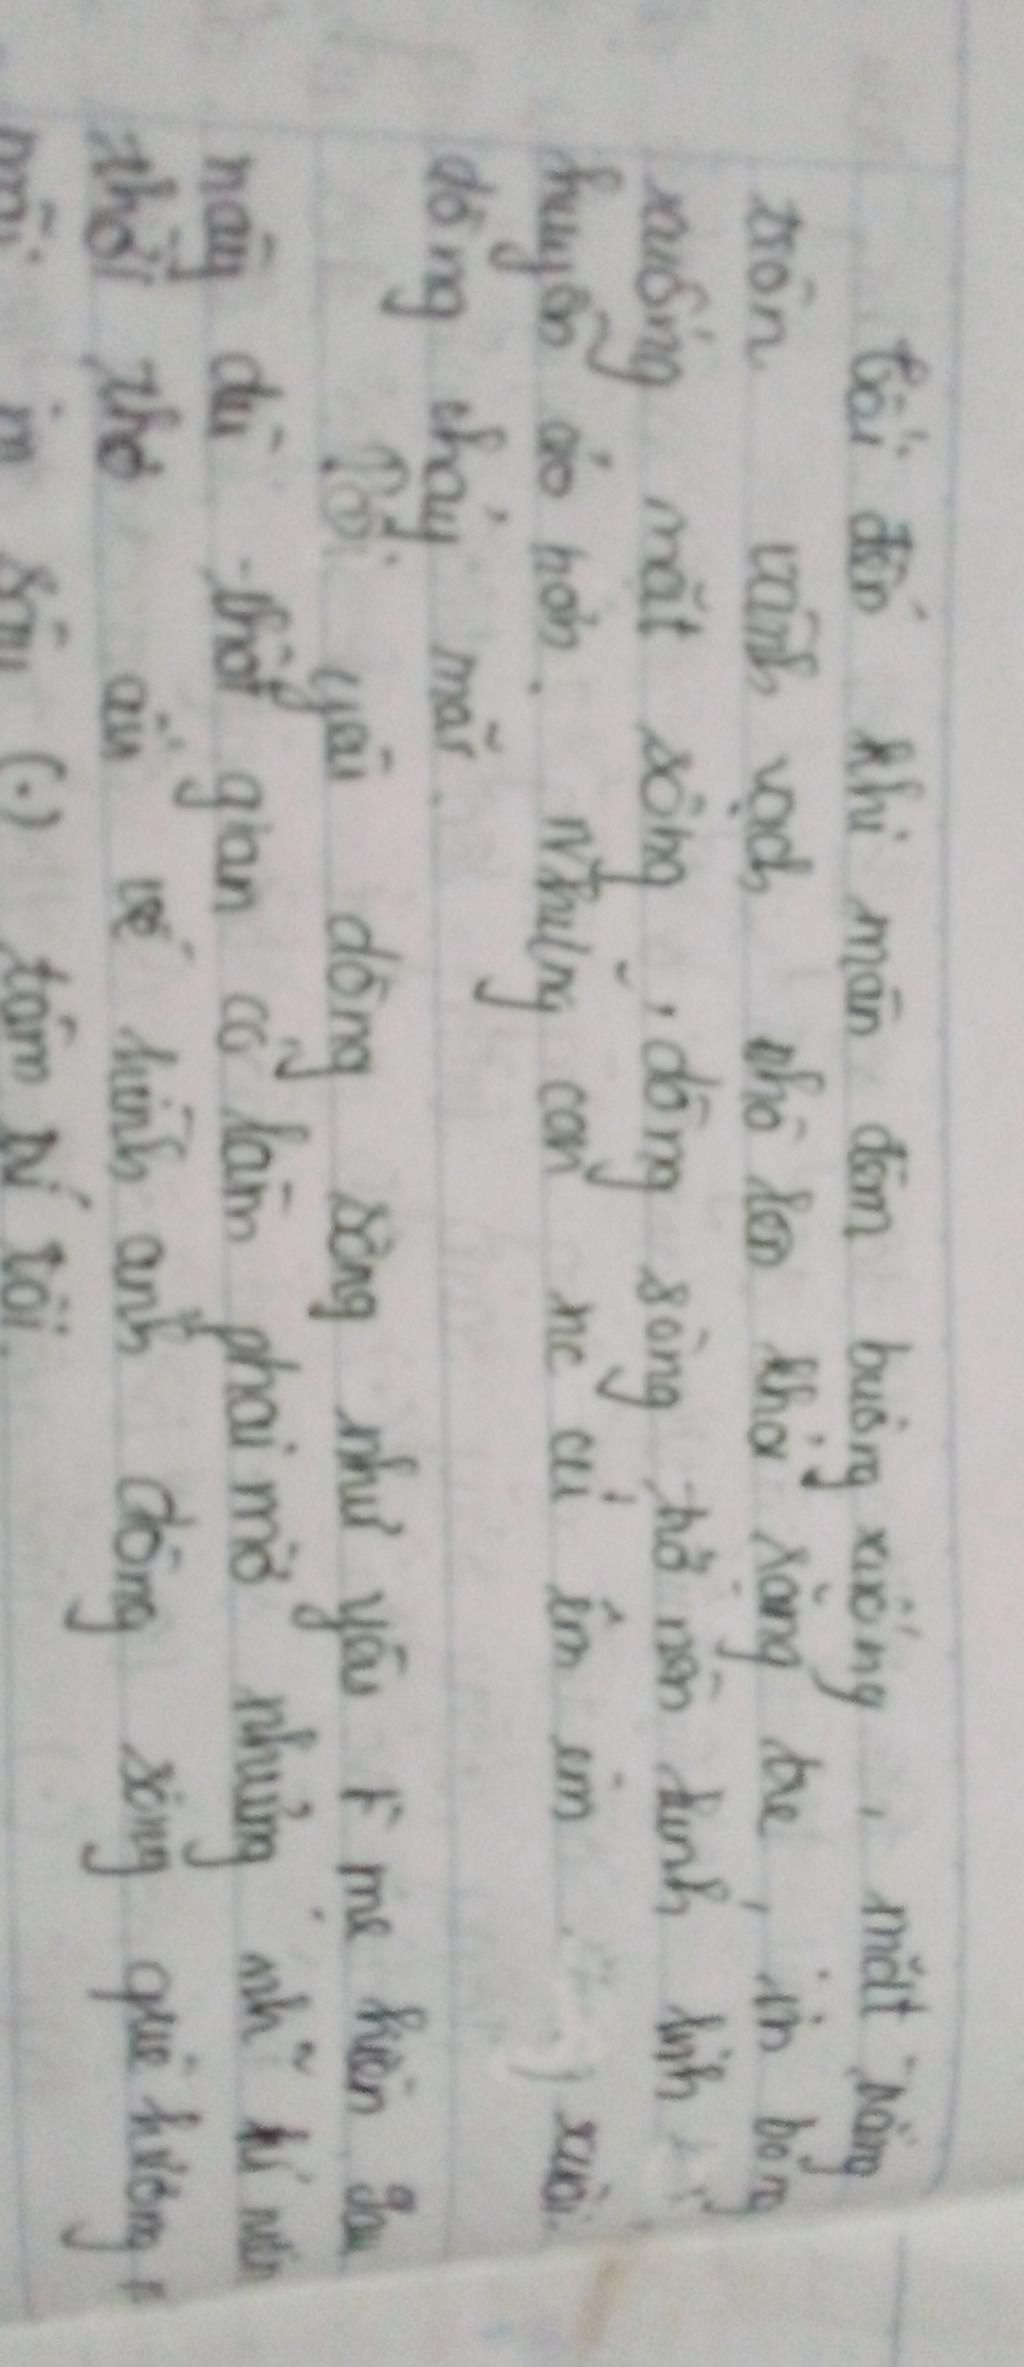 Tối đến khi màn đêm buông xuống, mặt trăng
tròn vành vạch nhô lên khỏi rặng tre, in bóng
xuống mặt sông, dòng sông trở nên lung linh
huyền ảo hơn. Những con nc cứ êm êm xuôi
dòng chảy mãi.
Tôi yêu dòng sông như yêu mẹ hiền
này dù thời gian có làm phai mờ nhưng kí niệm
thời thơ ấu về hình ảnh dòng sông quê hương
mãi in sâu (.) tâm trí tôi.